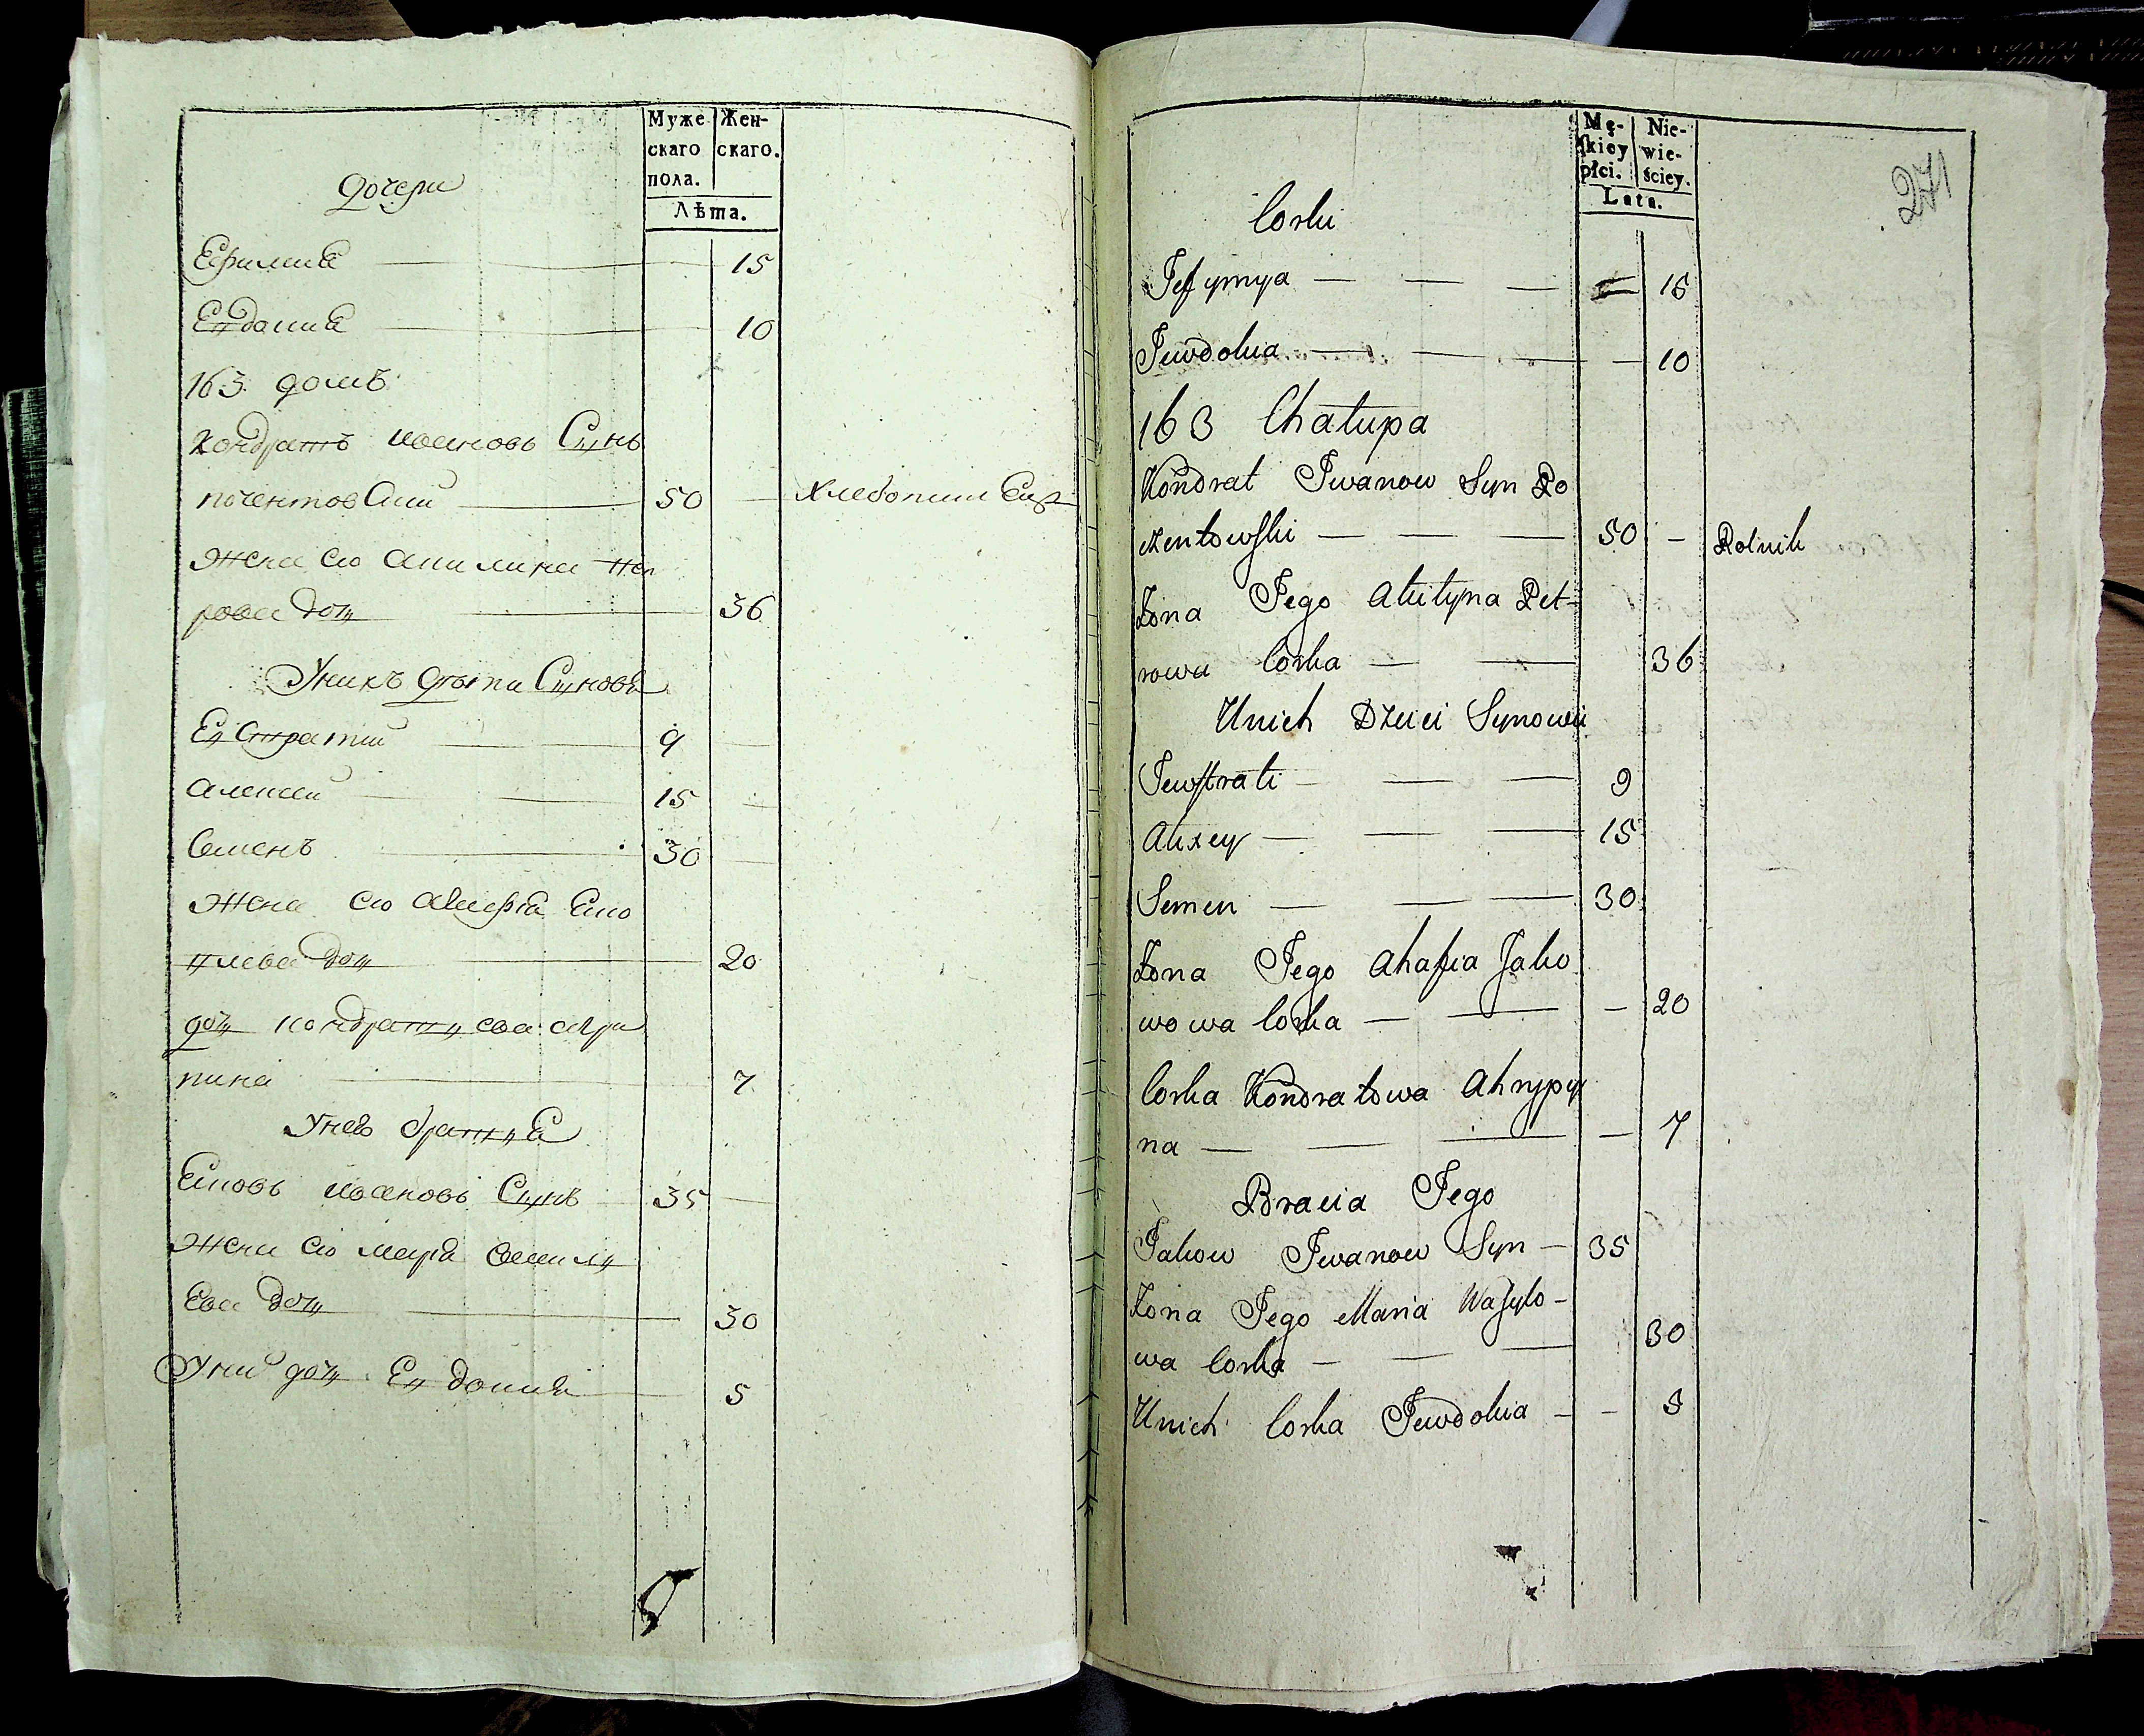 Муже Жен-
скаго скаго.
пола.
Лѣта.
дочери
Ефимиа 15
Евдокиа 10
163 домъ
Кондратъ Ивановъ Сынъ
почентовский 50 — Хлебопашецъ
Жена его Акилина Пет
рова дочь 36
У них дѣти Сыновья
Евстратий 9
Алексей 15
Семенъ 30
Жена его Агафиа Яко
влева дочь 20
дочь Кондратьева Агри
пина 7
У него братья
Яковъ Ивановъ Сынъ 35
Жена его Мариа Василь
ева дочь 30
У них дочь Евдокия 5
Mę- Nie-
ſkiey wie-
płci. ściey.
Lata.
271
Corki
Jefymya — — — — 15
Jewdokia — — — — 10
163 Chałupa
Kondrat Iwanow Syn Po
czentowſki — — — 50 — Rolnik
Żona Jego Akilyna Pet-
rowa Corka — — 36
Unich Dzieci Synowie
Jewſtrati — — — 9
Alexey — — — 15
Semen — — — 30
Żona Jego Ahafia Jako
wowa Corka — — — 20
Corka Kondratowa Ahrypy
na — — — — 7
Bracia Jego
Jakow Iwanow Syn — 35
Żona Jego Maria Waſylo-
wa Corka — — — 30
Unich Corka Jewdokia — — 5